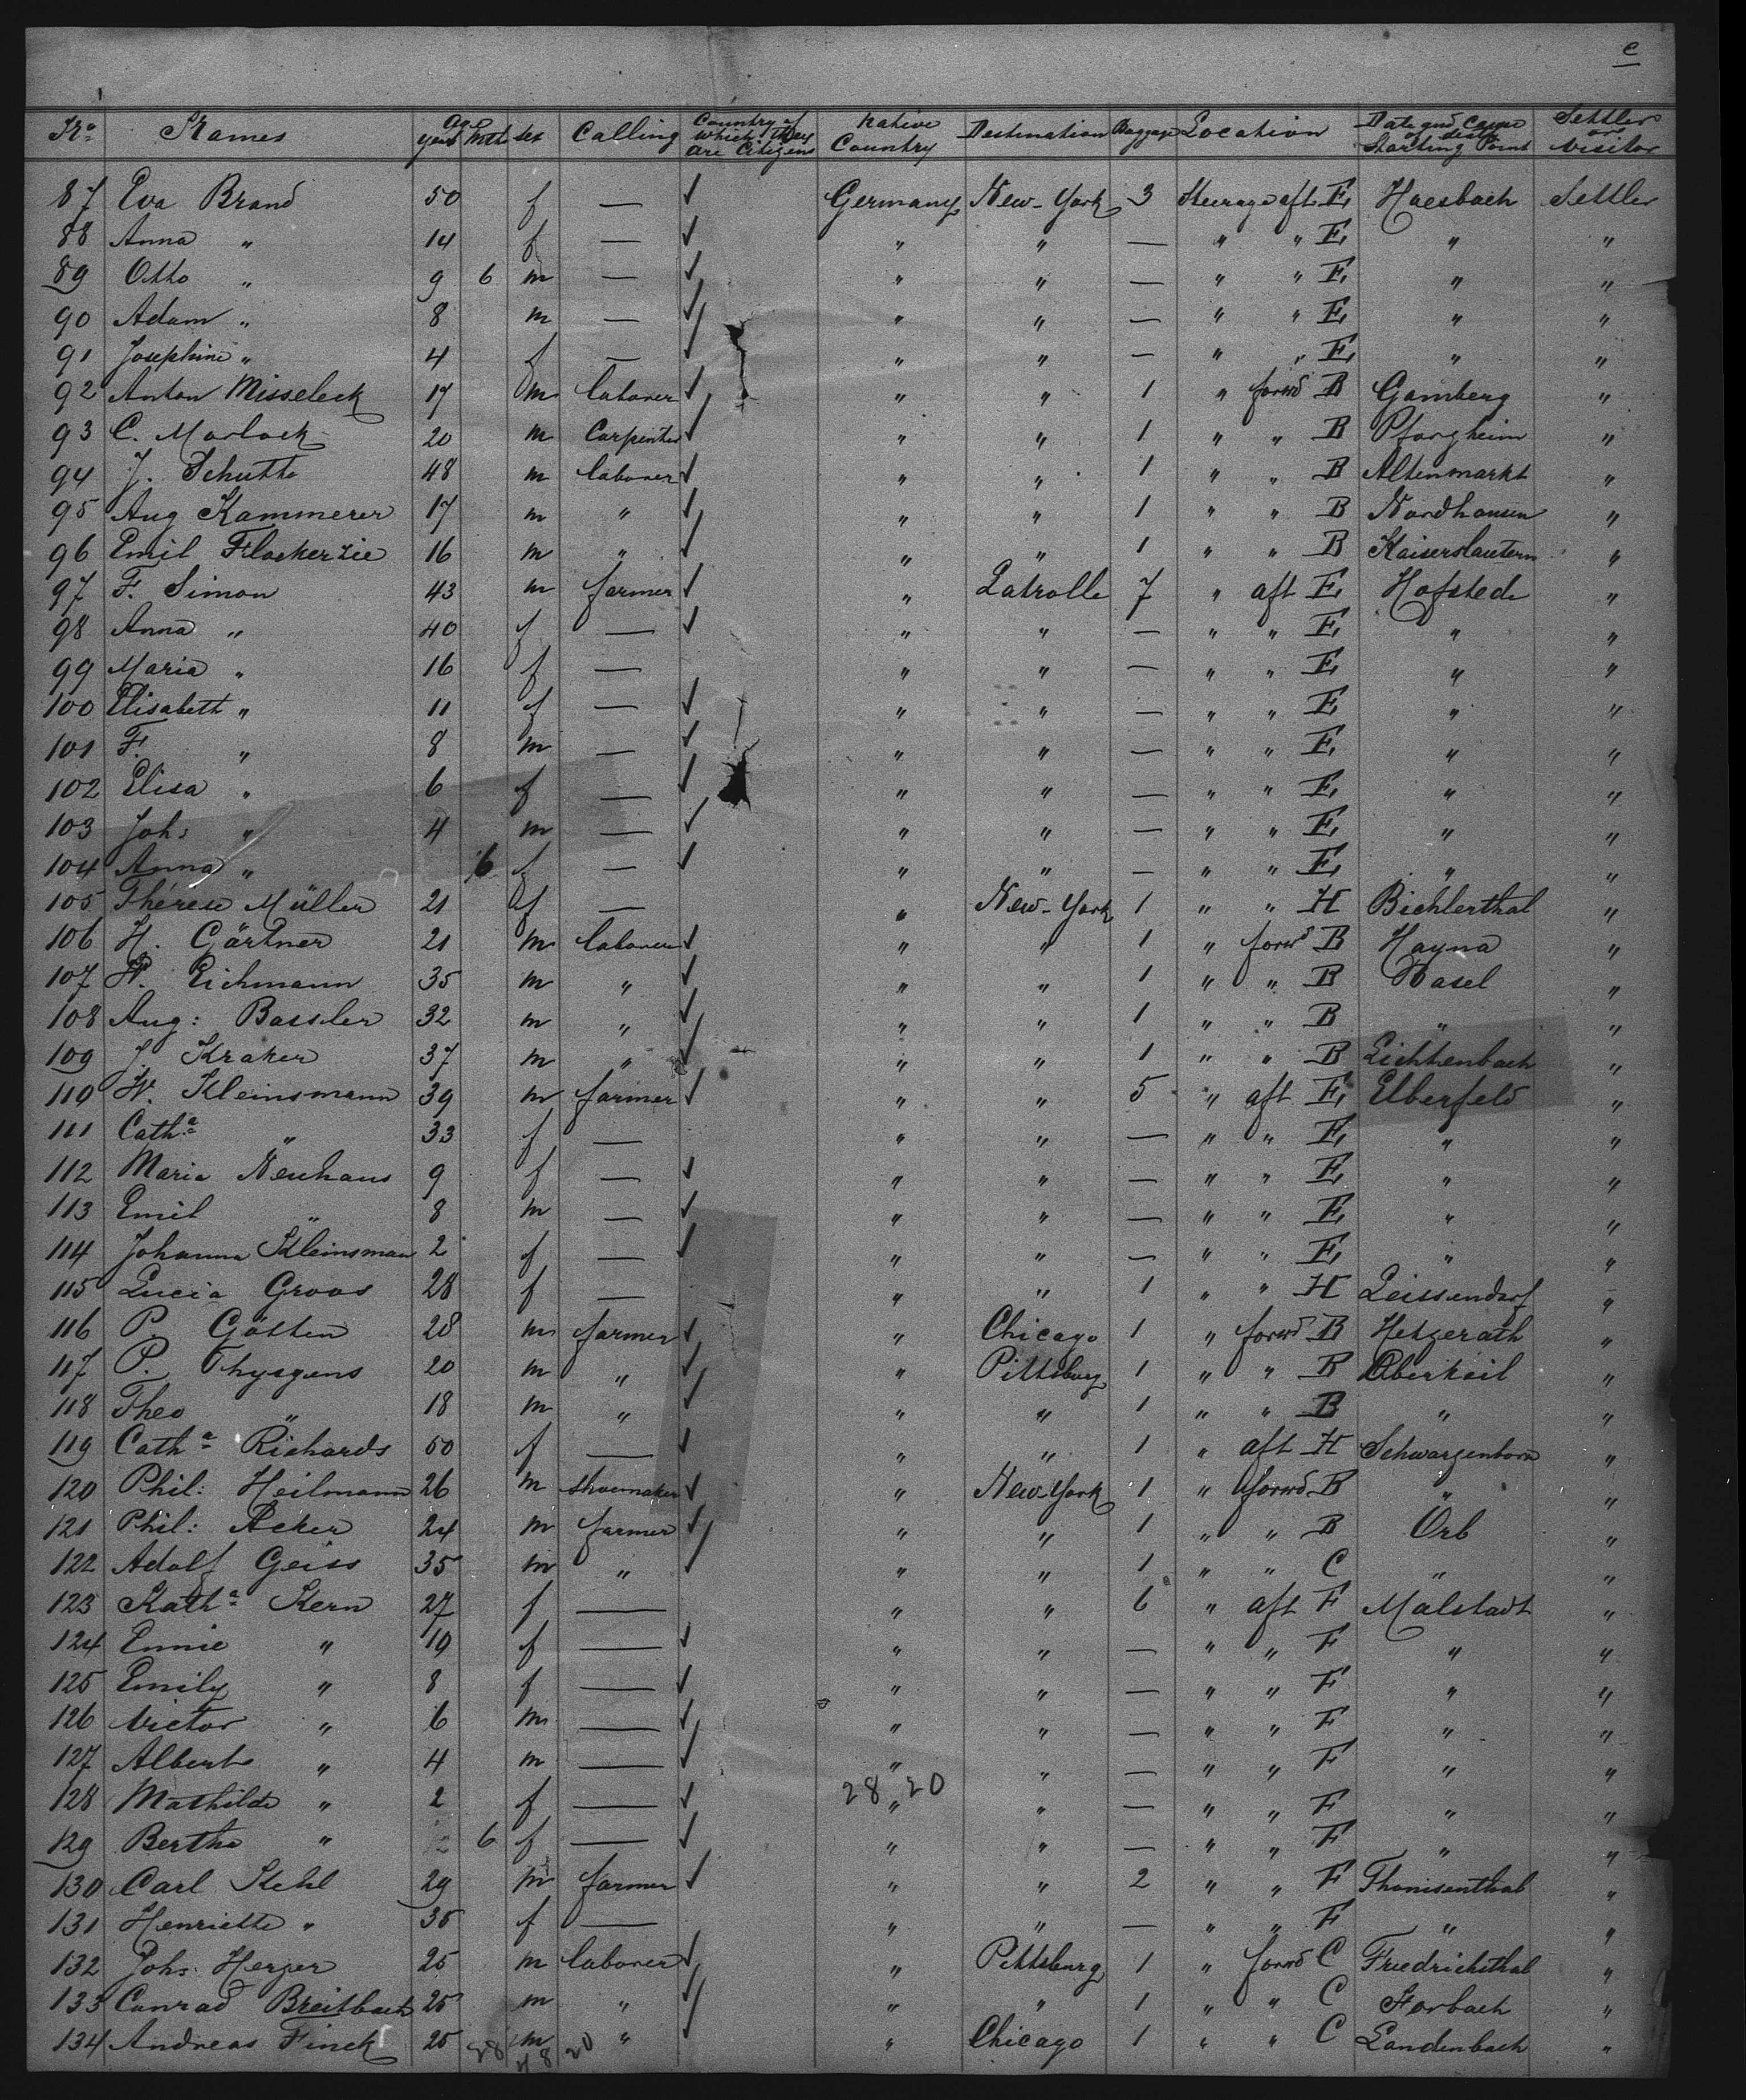 e
No Names Age years Mth sex Calling Country of which they are Citizens Native Country Destination Baggage Location Date and Cause of death Starting Point Settler or Visitor
87 Eva Brand 50 f — ✓ Germany New-York 3 Steerage aft E Haesbach Settler
88 Anna " 14 f — ✓ " " — " " E " "
89 Otto " 9 6 m — ✓ " " — " " E " "
90 Adam " 8 m — ✓ " " — " " E " "
91 Josephine " 4 f — ✓ " " — " " E " "
92 Anton Misseleck 17 m laborer ✓ " " 1 " forwd B Gamberg "
93 C. Morlock 20 m Carpenter ✓ " " 1 " " B Pforzheim "
94 J. Schutte 48 m laborer ✓ " " 1 " " B Altenmarkt "
95 Aug Kammerer 17 m " ✓ " " 1 " " B Nordhausen "
96 Emil Flockerzie 16 m " ✓ " " 1 " " B Kaiserslautern "
97 F. Simon 43 m farmer ✓ " Latrolle 7 " aft E Hofstede "
98 Anna " 40 f — ✓ " " — " " E " "
99 Maria " 16 f — " " — " " E " "
100 Elisabeth " 11 f — ✓ " " — " " E " "
101 F. " 8 m — ✓ " " — " " E " "
102 Elisa " 6 f — ✓ " " — " " E " "
103 Johs " 4 m — ✓ " " — " " E " "
104 Anna " 6 f — ✓ " " — " " E " "
105 Thérese Müller 21 f — " New-York 1 " " H Bichlerthal "
106 H. Gärtner 21 m laborer ✓ " " 1 " forwd B Hayna "
107 W. Eichmann 35 m " ✓ " " 1 " " B Basel "
108 Aug: Bassler 32 m " ✓ " " 1 " " B " "
109 J. Kraker 37 m " ✓ " " 1 " " B Lichtenbach "
110 W. Kleinsmann 39 m farmer ✓ " " 5 " aft E Elberfeld "
111 Catha " 33 f — " " — " " E " "
112 Maria Neuhaus 9 f — ✓ " " — " " E " "
113 Emil " 8 m — ✓ " " — " " E " "
114 Johanna Kleinsman 2 f — ✓ " " — " " E " "
115 Lucia Groos 28 f — " " 1 " " H Leissendorf "
116 P. Götten 28 m farmer ✓ " Chicago 1 " forwd B Hetzerath "
117 P. Thysgens 20 m " ✓ " Pittsburg 1 " " B Oberkail "
118 Theo " 18 m " ✓ " " 1 " " B " "
119 Catha Richards 50 f — ✓ " " 1 " aft H Schwarzenborn "
120 Phil: Heilmann 26 m shoemaker ✓ " New-York 1 " forwd B " "
121 Phil: Acker 24 m farmer ✓ " " 1 " " B Orb "
122 Adolf Geiss 35 m " ✓ " " 1 " " C " "
123 Katha Kern 27 f — " " 6 " aft F Malstadt "
124 Ennie " 10 f — ✓ " " — " " F " "
125 Emily " 8 f — ✓ " " — " " F " "
126 Victor " 6 m — ✓ " " — " " F " "
127 Albert " 4 m — ✓ " " — " " F " "
28 20
128 Mathilde " 2 f — ✓ " " — " " F " "
129 Bertha " 6 f — ✓ " " — " " F " "
130 Carl Kehl 29 m farmer ✓ " " 2 " " F Thonisenthal "
131 Henriette " 35 f — " " — " " F " "
132 Johs Herzer 25 m laborer ✓ " Pittsburg 1 " forwd C Friedrichsthal "
133 Conrad Breitbach 25 m " ✓ " " 1 " " C Forbach "
134 Andreas Finck 25 m " ✓ " Chicago 1 " " C Landenbach "
28 48 20